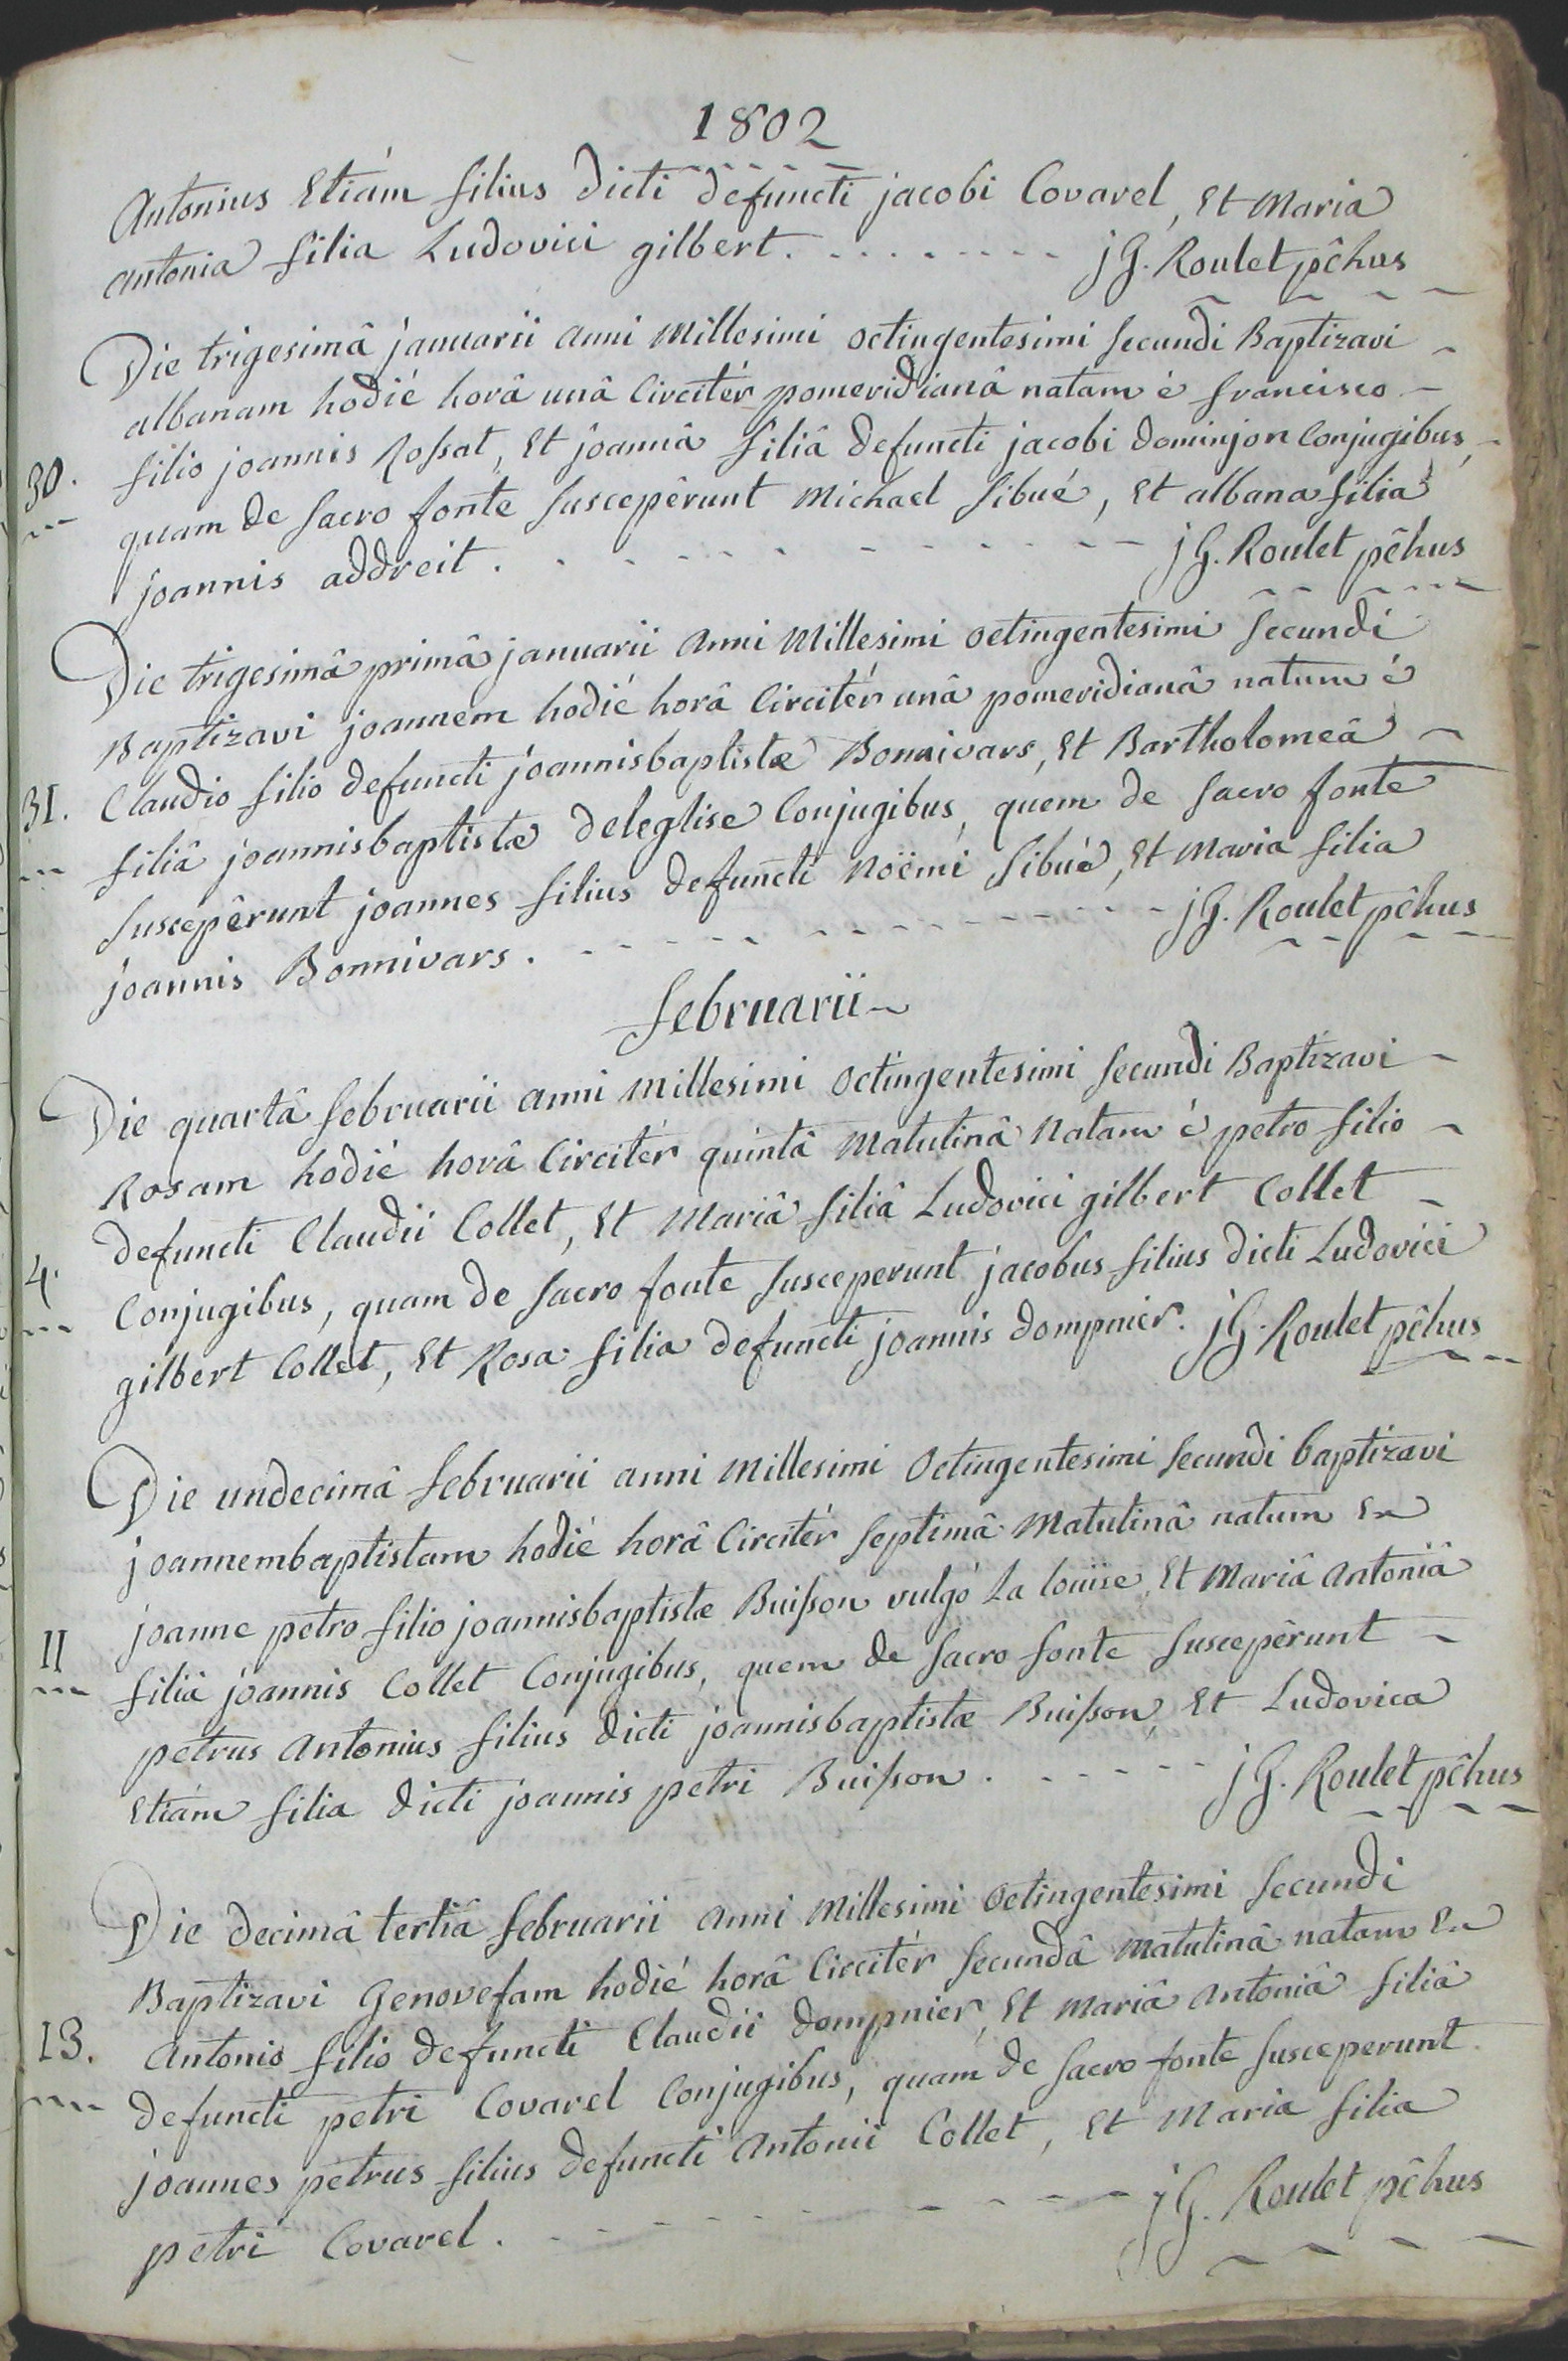 1802
Antonius Etiám filius dicti defuncti jacobi Covarel, Et Maria
antonia filia Ludovici gilbert. jG. Roulet pêhus
Die trigesimâ januarii anni Millesimi octingentesimi secundi Baptizavi
albanam hodié horâ unâ Circitér pomeridianâ natam é francisco
30. filio joannis Rossat, Et joannâ filiâ defuncti jacobi dominjon Conjugibus,
quam de sacro fonte suscepêrunt Michael sibué, Et albana filia
joannis addreit. jG. Roulet pêhus
Die trigesimâ primâ januarii anni Millesimi octingentesimi secundi
Baptizavi joannem hodié horâ Circitér unâ pomeridianâ natum é
31. Claudio filio defuncti joannisbaptistæ Bonnivars, Et Bartholomeâ
filiâ joannisbaptistæ deleglise Conjugibus, quem de sacro fonte
suscepêrunt joannes filius defuncti Noëmi sibué, Et Maria filia
joannis Bonnivars. jG. Roulet pêhus
februarii
Die quartâ februarii anni Millesimi octingentesimi secundi Baptizavi
Rosam hodié horâ Circitér quintâ Matutinâ Natam é petro filio
defuncti Claudii Collet, Et Mariâ filiâ Ludovici gilbert Collet
4. Conjugibus, quam de sacro fonte susceperunt jacobus filius dicti Ludovici
gilbert Collet, Et Rosa filia defuncti joannis dompnier. jG. Roulet pêhus
Die undecimâ februarii anni Millesimi Octingentesimi secundi baptizavi
joannembaptistam hodié horâ Circitér septimâ Matutinâ natum Ex
11 joanne petro filio joannisbaptistæ Buisson vulgó La louise, Et Mariâ antoniâ
filiâ joannis Collet Conjugibus, quem de sacro fonte suscepêrunt
petrus antonius filius dicti joannisbaptistæ Buisson, Et Ludovica
Etiám filia dicti joannis petri Buisson. jG. Roulet pêhus
Die decimâ tertiâ februarii anni Millesimi octingentesimi secundi
Baptizavi Genovefam hodié horâ Circitér secundâ Matutinâ natam Ex
13. antonio filio defuncti Claudii dompnier, Et Mariâ antoniâ filiâ
defuncti petri Covarel Conjugibus, quam de sacro fonte susceperunt
joannes petrus filius defuncti antonii Collet, Et Maria filia
petri Covarel. jG. Roulet pêhus